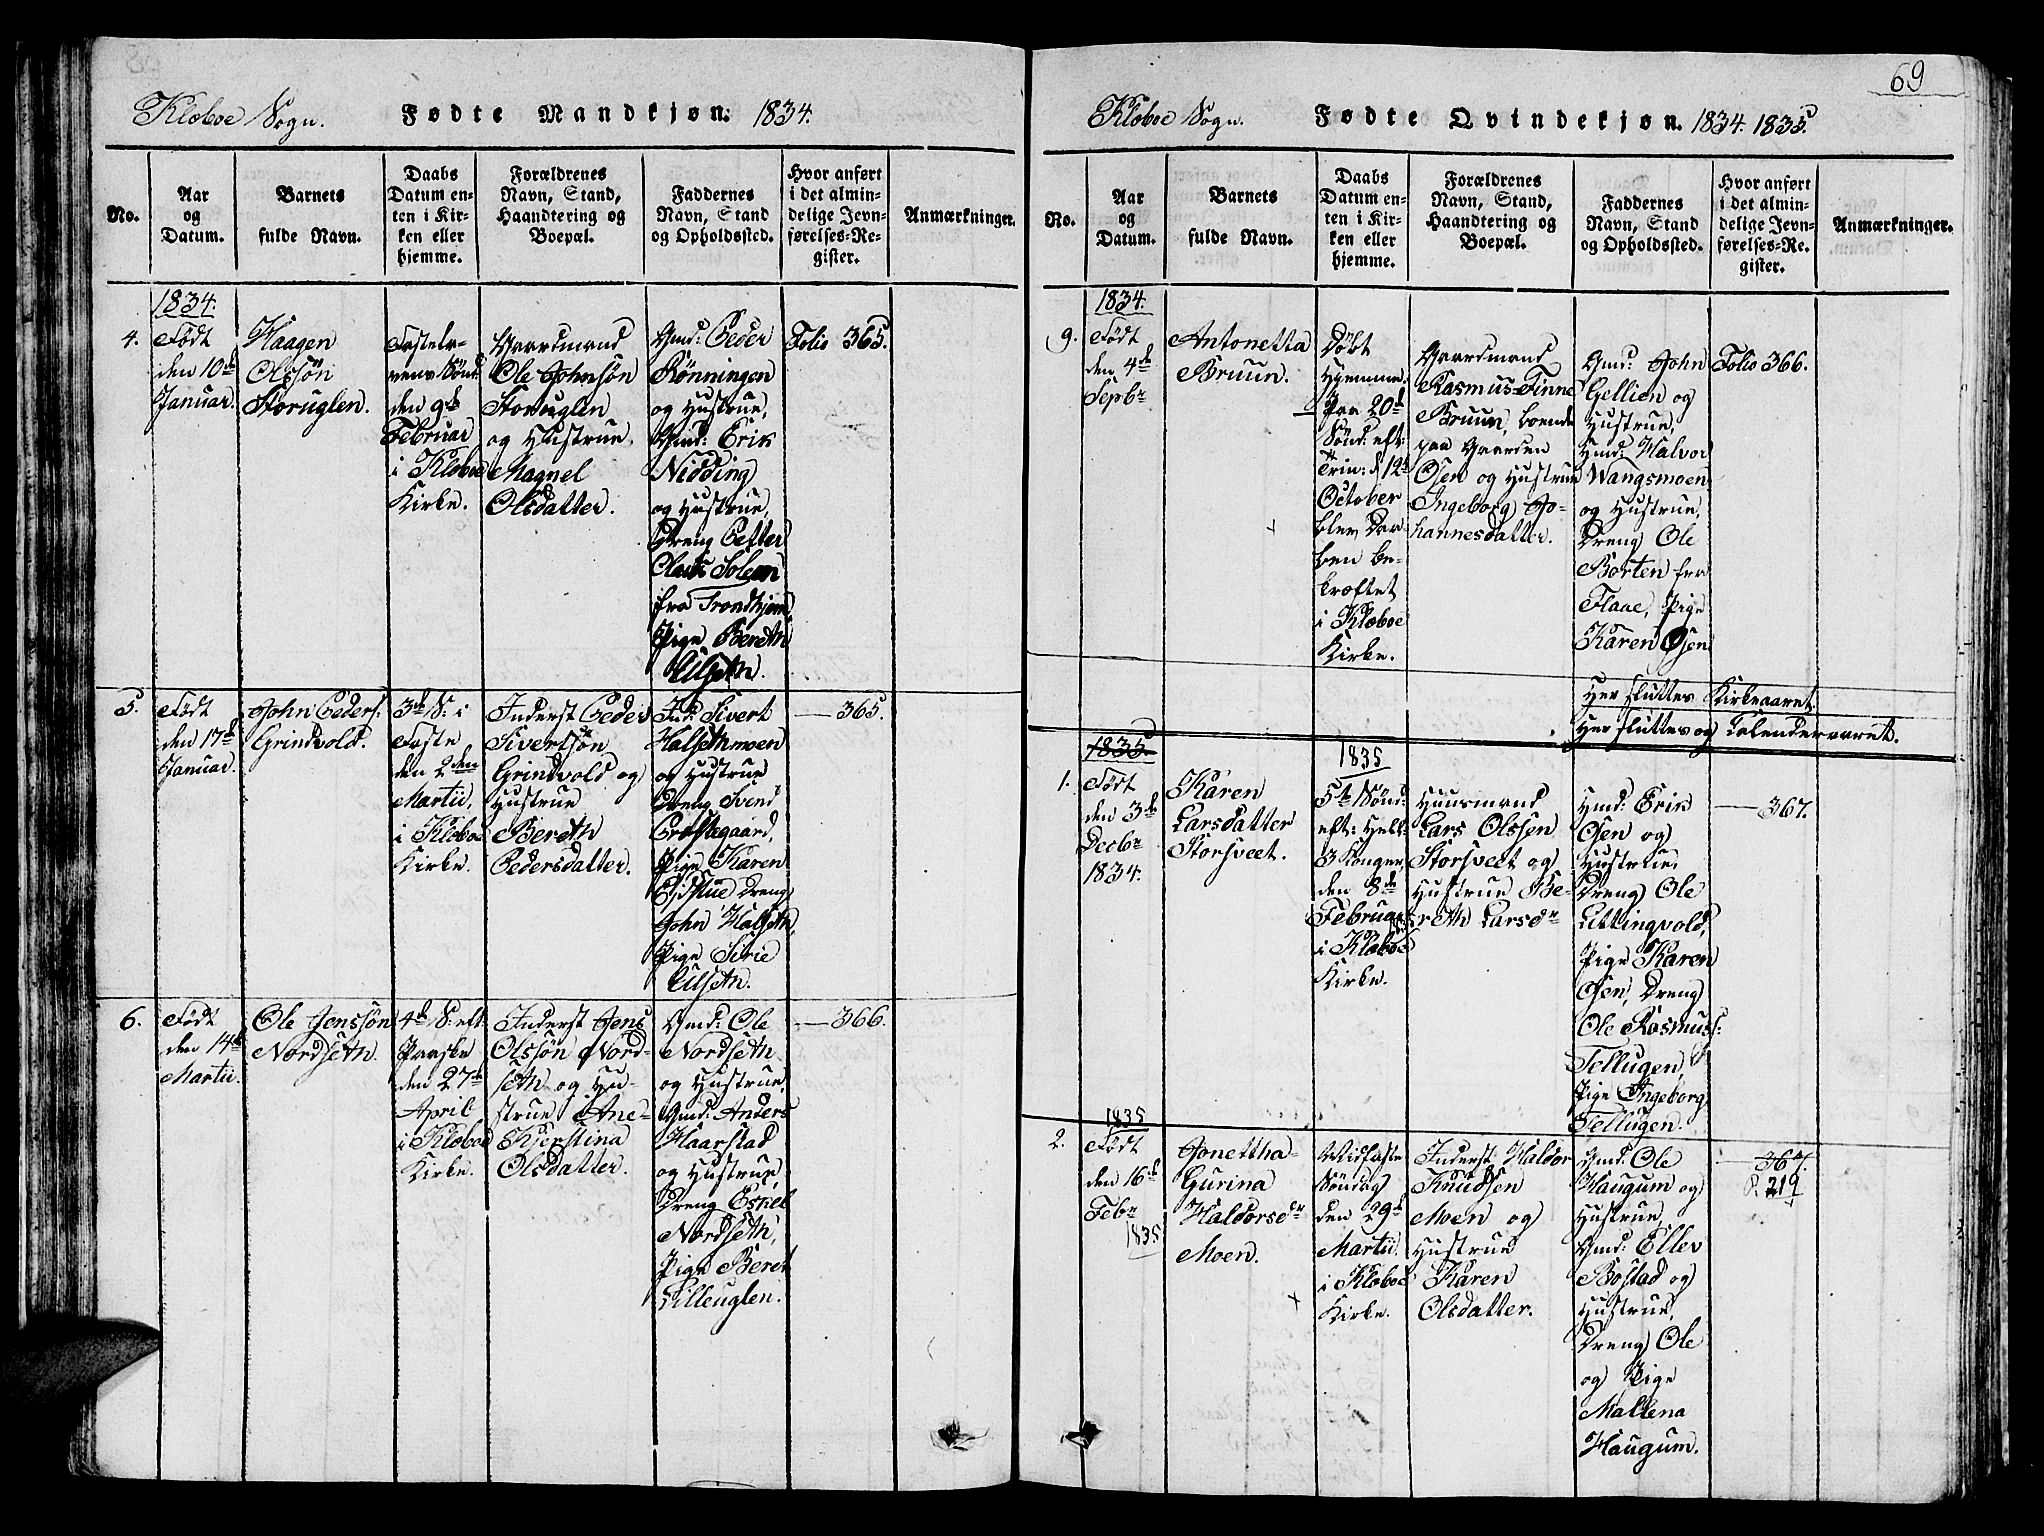 Klæboe Sogn.
Fødte Mandkjøn: 1834.
No.
Aar
og
Datum.
Barnets
fulde Navn.
Daabs
Datum en-
ten i Kir-
ken eller
hjemme.
Forældrenes
Navn, Stand,
Haandtering og
Boepæl.
Faddernes
Navn, Stand
og Opholdssted.
Hvor anført
i det almin-
delige Jevn-
førelses-Re-
gister.
Anmærkninger.
1834.
4.
Født
den 10de
Januar.
Haagen
Olssøn
Storuglen.
Fastela-
vens Sønd:
den 9de
Februar
i Klæboe
Kirke.
Gaardmand
Ole Johnsøn
Storuglen
og Hustrue
Magnel
Olsdatter.
Gmd: Peder
Rønningen
og Hustrue,
Gmd: Erik
Nidding
og Hustrue,
Dreng Petter
Solem
fra Trondhjem,
Pige Bereth
Ulseth.
Folio 365.
5.
Født
den 17de
Januar.
John Peders:
Grindvold.
3de S: i
Faste
den 2den
Martii,
i Klæboe
Kirke.
Inderst Peder
Sivertsøn
Grindvold og
Hustrue
Bereth
Pedersdatter.
Ind: Sivert
Halsethmoen
og Hustrue
Dreng Svend
Præstegaard,
Pige Karen
Eidstue Dreng
John Halseth,
Pige Sirie
Ulseth.
— 365.
6.
Født
den 14de
Martii.
Ole Jenssøn
Nordseth.
4de S: eft:
Paaske
den 27de
April
i Klæboe
Kirke.
Inderst Jens
Olssøn Nord-
seth og Hu-
strue Ane-
Kjerstina
Olsdatter.
Gmd: Ole
Nordseth
og Hustrue,
Gmd: Anders
Haarstad
og Hustrue,
Dreng Eskel
Nordseth,
Pige Beret
Lilleuglen.
— 366.
69
Klæboe Sogn.
Fødte Qvindekjøn. 1834. 1835.
No.
Aar
og
Datum.
Barnets
fulde Navn.
Daabs
Datum en-
ten i Kir-
ken eller
hjemme.
Forældrenes
Navn, Stand,
Haandtering og
Boepæl.
Faddernes
Navn, Stand
og Opholdssted.
Hvor anført
i det almin-
delige Jevn-
førelses-Re-
gister.
Anmærkninger.
1834.
9.
Født
den 4de
Septbr
Antonetta
Bruun.
Døbt
hjemme.
Paa 20de
Sønd: eft:
Trin: d 12te
October
blev Daa-
ben be-
kræftet
i Klæboe
Kirke.
Gaardmand
Rasmus Finne
Bruun, boende
paa Gaarden
Osen og Hustrue
Ingeborg Jo-
hannesdatter.
Gmd: John
Gellien og
Hustrue,
Hmd: Halvor
Wangsmoen
og Hustrue,
Dreng Ole
Borten fra
Flaae, Pige
Karen Osen
Folio 366.
Her sluttes Kirkeaaret.
Her sluttes og Calenderaaret.
1835.
1.
Født
den 3de
Decbr
1834.
Karen
Larsdatter
Storsveet.
1835
5te Sønd:
eft: Hell:
3 Konger,
den 8de
Februar
i Klæboe
Kirke.
Huusmand
Lars Olssen
Storsveet og
Hustrue Be-
reth Larsdr
Hmd: Erik
Osen og
Hustrue,
Dreng Ole
Lettingvold,
Pige Karen
Osen, Dreng
Ole Rasmuss:
Tellugen,
Pige Ingeborg
Tellugen.
— 367.
1835
2.
Født
den 16de
Febr
1835
Jonettha-
Gurina
Haldorsdr
Moen.
Midfaste
Søndag
den 29de
Martii
i Klæboe
Kirke.
Inderst Haldor
Knudsen
Moen og
Hustrue
Karen
Olsdatter.
Gmd: Ole
Haugum og
Hustrue,
Gmd: Ellev
Bostad og
Hustrue,
Dreng Ole
og Pige
Mallena
Haugum.
367.
P. 219